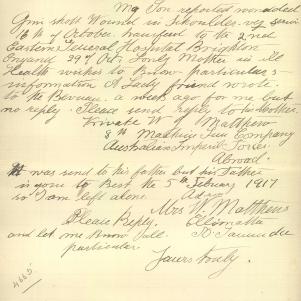 My Son reported wounded
Gun shott Wound in Shoulder very severe
16th of October. transferd to the 2nd
Eastern General Hospital Brighton
England 29th of Oct. Lonly Mother in ill
Health wishes to know particulars
information A Lady friend wrote
to the Bureau a week ago for me but
no reply. Please send reply to Mother
Private W J Matthews
8th Machine Gun Company
Australian Imperil Forces
Abroad.
It was send to his father but his Father
is gone to Rest the 5th February 1917
so I am left alone
Mrs W Matthews
Please Reply
and let me know full
particulars
Yours truly